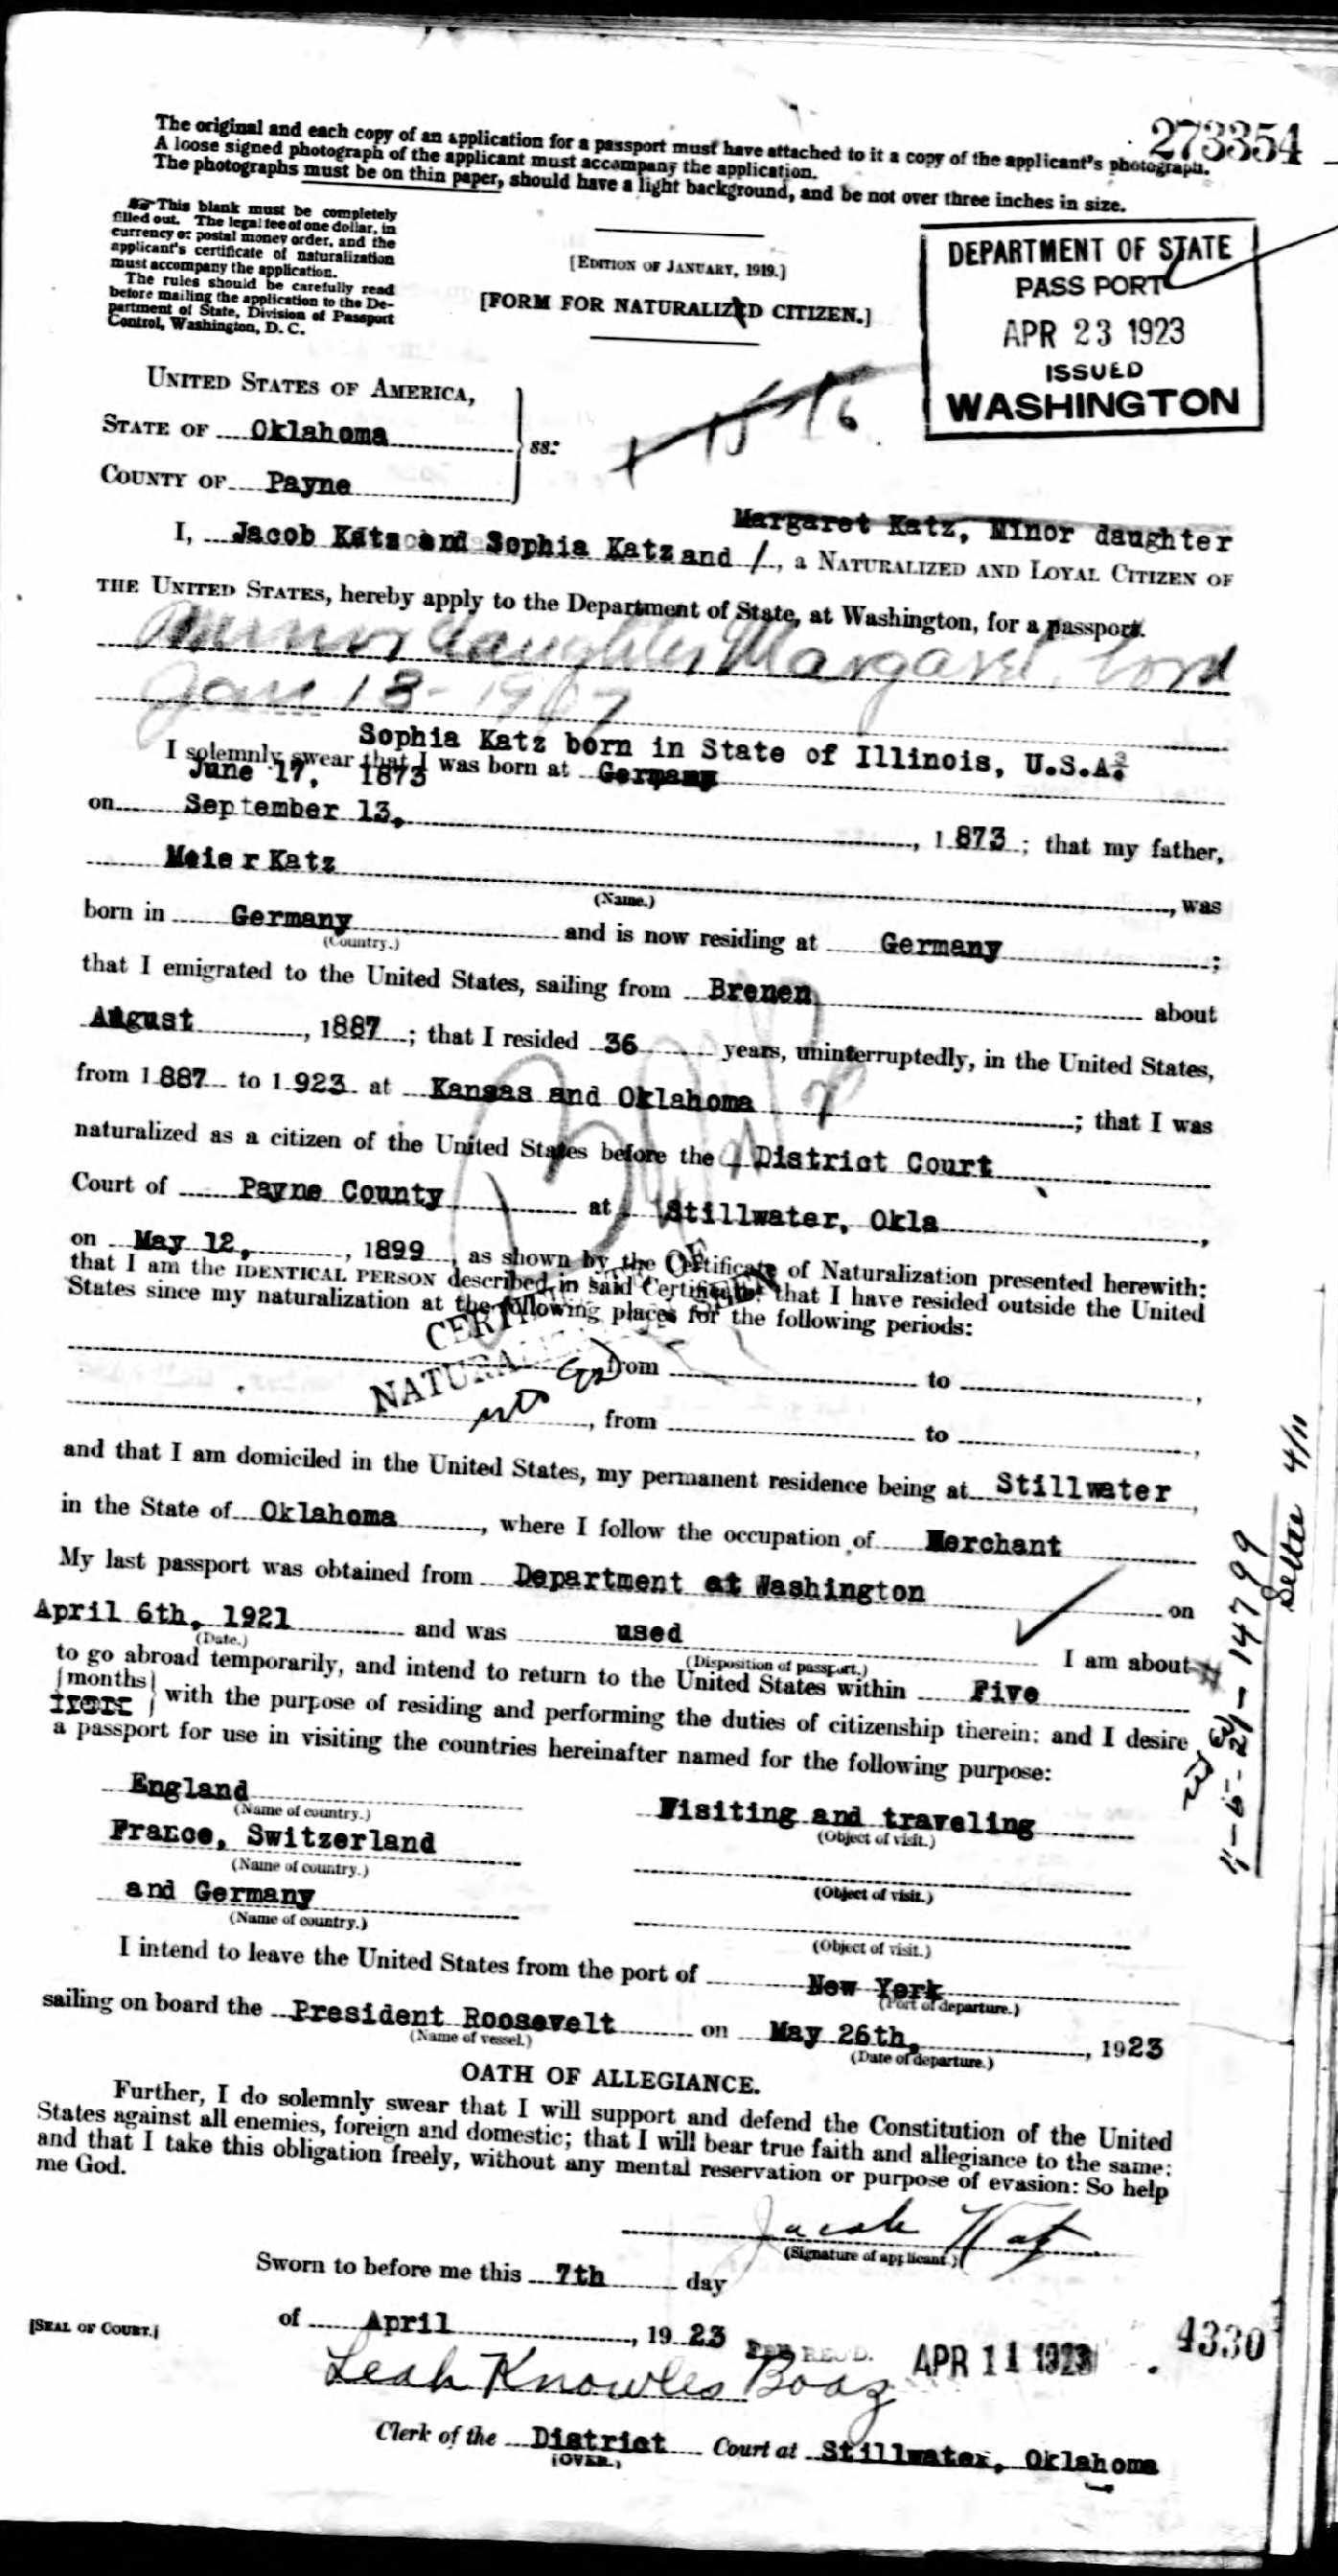 273354
The original and each copy of an application for a passport must have attached to it a copy of the applicant's photograph.
A loose signed photograph of the applicant must accompany the application.
The photographs must be on thin paper, should have a light background, and be not over three inches in size.
This blank must be completely
filled out. The legal fee of one dollar, in
currency or postal money order, and the
applicant's certificate of naturalization
must accompany the application.
The rules should be carefully read
before mailing the application to the De-
partment of State, Division of Passport
Control, Washington, D. C.
[EDITION OF JANUARY, 1919.]
[FORM FOR NATURALIZED CITIZEN.]
DEPARTMENT OF STATE
PASSPORT
APR 23 1923
ISSUED
WASHINGTON
UNITED STATES OF AMERICA,
STATE OF Oklahoma
ss:
COUNTY OF Payne
Margaret Katz, Minor daughter
I, Jacob Katz and Sophia Katz and /, a NATURALIZED AND LOYAL CITIZEN OF
THE UNITED STATES, hereby apply to the Department of State, at Washington, for a passport.
Minor daughter Margaret, born
Jan 13-1907
Sophia Katz born in State of Illinois, U.S.A.
I solemnly swear that I was born at Germany
June 17, 1873
on September 13, 1873; that my father,
Meier Katz
(Name.) , was
born in Germany and is now residing at Germany;
(Country.)
that I emigrated to the United States, sailing from Bremen about
August, 1887; that I resided 36 years, uninterruptedly, in the United States,
from 1887 to 1923 at Kansas and Oklahoma; that I was
naturalized as a citizen of the United States before the District Court
Court of Payne County at Stillwater, Okla,
on May 12, 1899, as shown by the Certificate of Naturalization presented herewith;
that I am the IDENTICAL PERSON described in said Certificate; that I have resided outside the United
States since my naturalization at the following places for the following periods:
CERTIFICATE OF
NATURALIZATION SEEN
from to ,
, from to ,
and that I am domiciled in the United States, my permanent residence being at Stillwater,
in the State of Oklahoma, where I follow the occupation of Merchant
My last passport was obtained from Department at Washington on
April 6th, 1921 and was used I am about
(Date.) (Disposition of passport.)
to go abroad temporarily, and intend to return to the United States within Five
months
with the purpose of residing and performing the duties of citizenship therein; and I desire
a passport for use in visiting the countries hereinafter named for the following purpose:
England Visiting and traveling
(Name of country.) (Object of visit.)
France, Switzerland
(Name of country.) (Object of visit.)
and Germany
(Name of country.) (Object of visit.)
I intend to leave the United States from the port of New York
(Port of departure.)
sailing on board the President Roosevelt on May 26th, 1923
(Name of vessel.) (Date of departure.)
OATH OF ALLEGIANCE.
Further, I do solemnly swear that I will support and defend the Constitution of the United
States against all enemies, foreign and domestic; that I will bear true faith and allegiance to the same;
and that I take this obligation freely, without any mental reservation or purpose of evasion: So help
me God.
Jacob Katz
(Signature of applicant.)
Sworn to before me this 7th day
[SEAL OF COURT.] of April, 1923
FEE REC'D. APR 11 1923 4330
Leah Knowles Boaz
Clerk of the District Court at Stillwater, Oklahoma
(OVER.)
4-5-21-14799